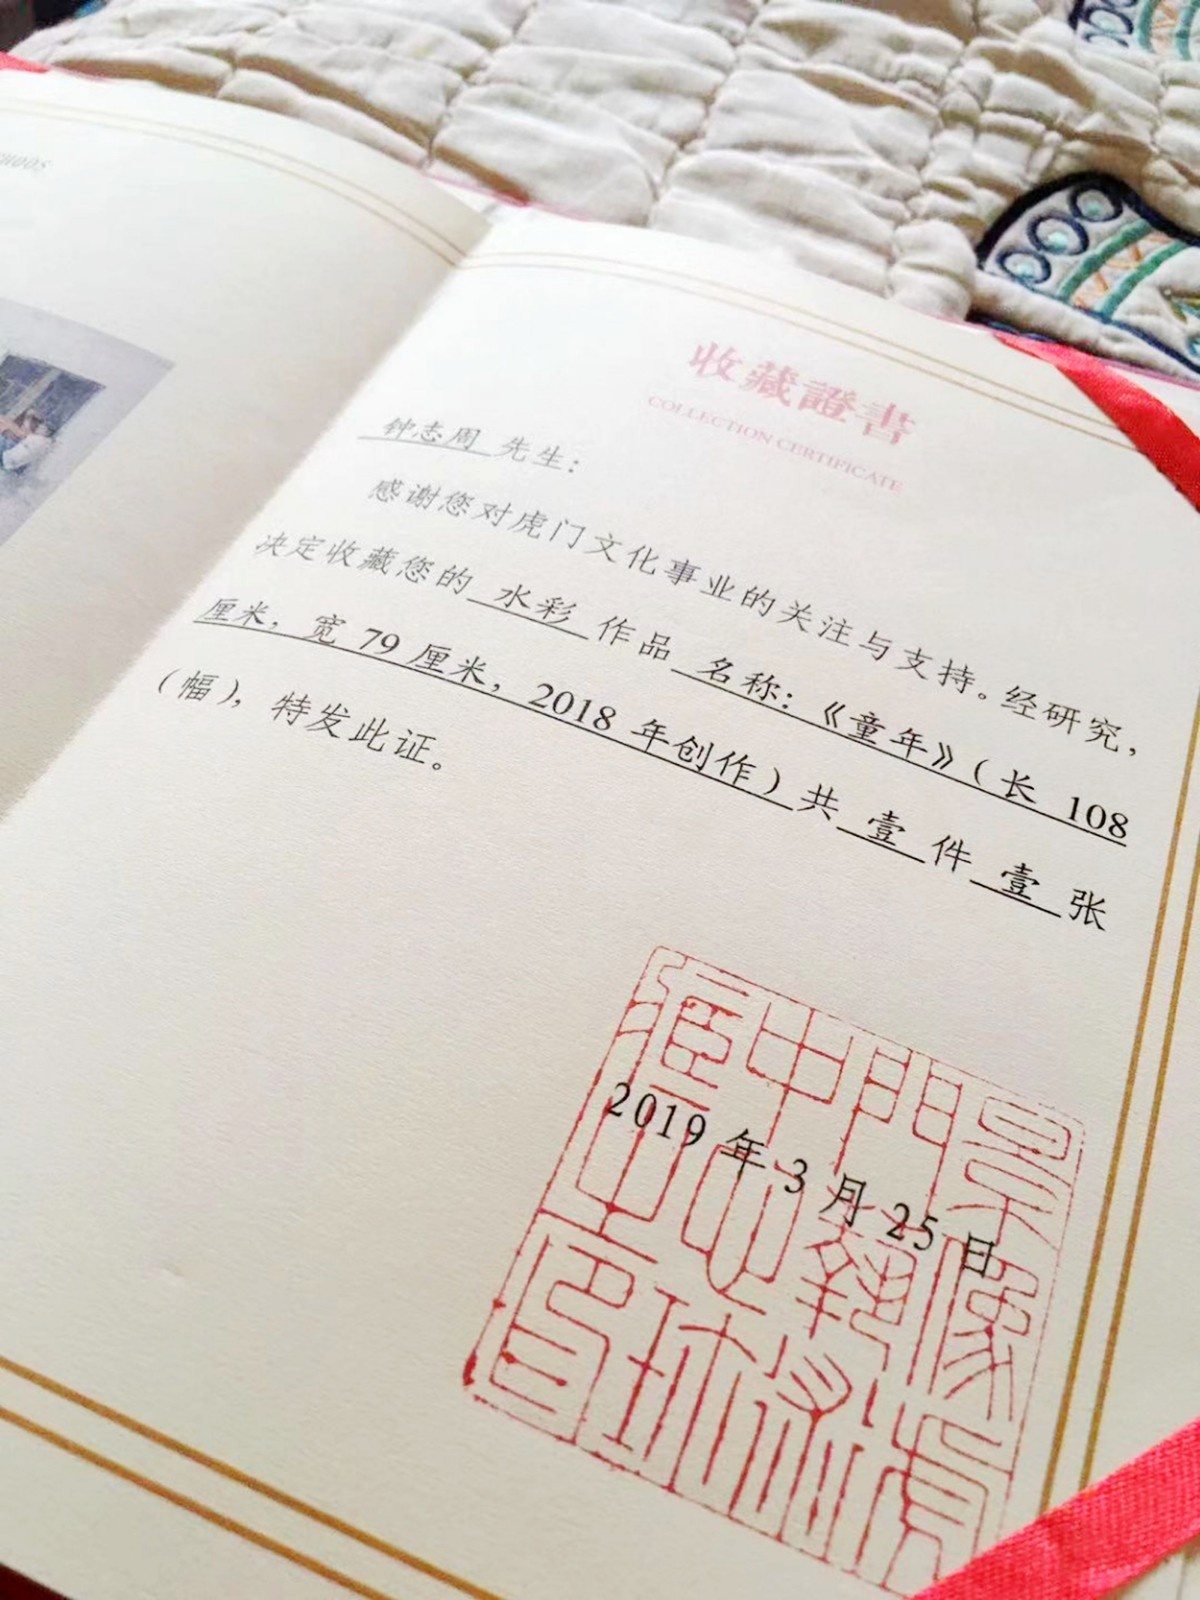 收藏證書
COLLECTION CERTIFICATE
钟志周 先生：
感谢您对虎门文化事业的关注与支持。经研究，
决定收藏您的 水彩 作品 名称：《童年》（长 108
厘米，宽 79 厘米，2018 年创作）共 壹 件 壹 张
（幅），特发此证。
2019 年 3 月 25 日